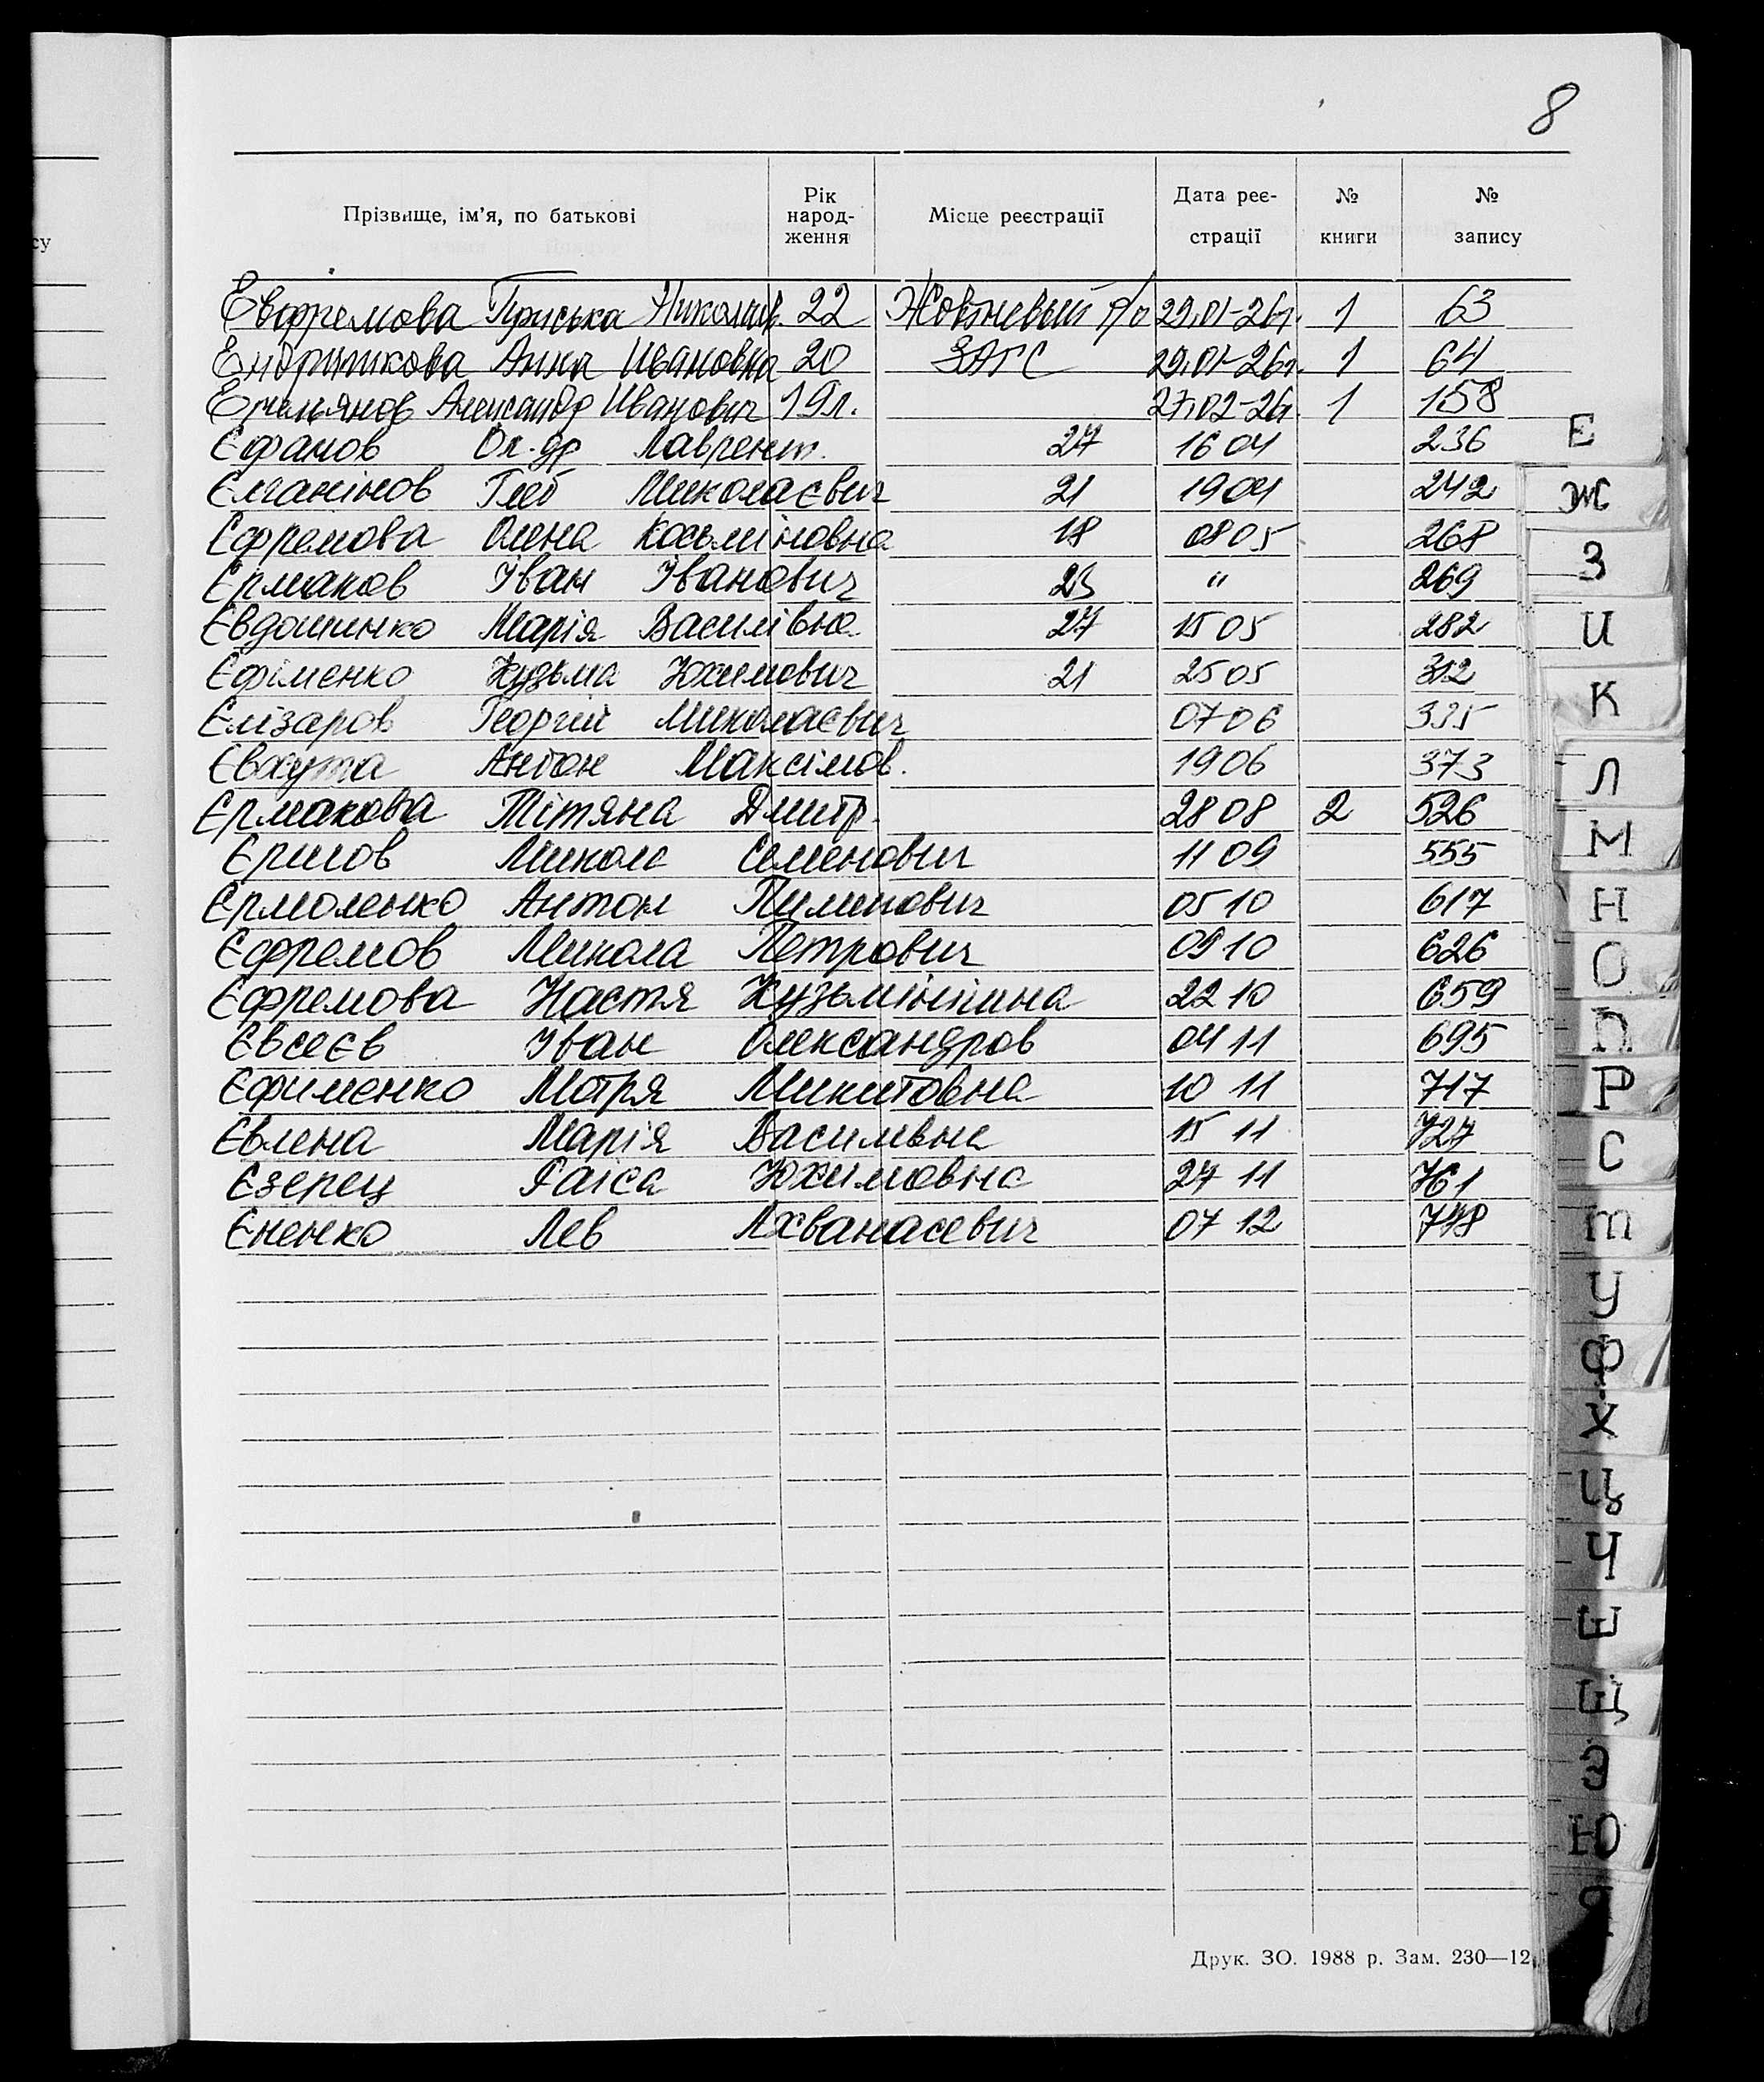 8
Прізвище, ім'я, по батькові Рік народ- ження Місце реєстрації Дата реє- страції № книги № запису
Евфремова Приська Николаев. 22 Жовтневый р/о 29.01-26г. 1 63
Анна Ивановна 20 ЗАГС 29.01-26г. 1 64
Емельянов Александр Иванович 19л. 27.02-26г. 1 158
Єфанов Ол.др Лаврент. 27 16 04 236
Глеб Миколаєвич 21 19 04 242
Єфремова Олена Косьміновна 18 08 05 268
Єрмаков Іван Іванович 23 " 269
Марія Василівна 27 15 05 282
Єфіменко Кузьма Юхимович 21 25 05 312
Єлізаров Георгій Миколаєвич 07 06 335
Євхута Антон Максімов. 19 06 373
Єрмакова Тітяна Дмитр. 28 08 2 526
Єршов Микола Семенович 11 09 555
Єрмоленко Антон Пименович 05 10 617
Єфремов Микола Петрович 09 10 626
Єфремова Настя 22 10 659
Євсеєв Іван Олександров 04 11 695
Єфименко Мотря Микитовна 10 11 717
Євлена Марія Василівна 15 11 727
Єзерец Раіса Юхимовна 27 11 761
Єненко Лев Ахванасевич 07 12 798
Е
Ж
З
И
К
Л
М
Н
О
П
Р
С
Т
У
Ф
Х
Ц
Ч
Ш
Щ
Э
Ю
Я
Друк. ЗО. 1988 р. Зам. 230—12